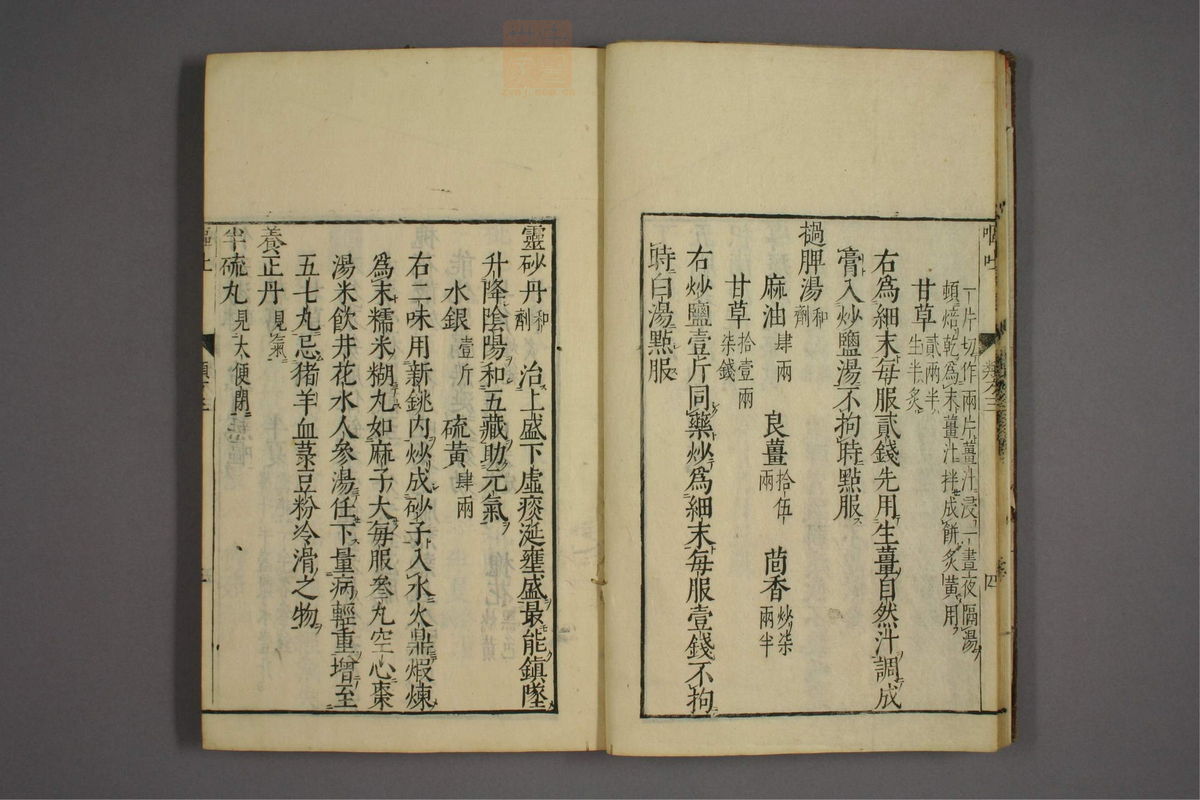 一片切作兩片薑汁浸一晝夜隔湯
頓焙乾為末薑汁拌成餅炙黄用
甘草貳兩半生半炙
右為細末每服貳錢先用生薑自然汁調成
膏入炒鹽湯不拘時點服
撾脾湯和劑
麻油肆兩 良薑拾伍兩 茴香炒柒兩半
甘草拾壹兩柒錢
右炒鹽壹斤同藥炒為細末每服壹錢不拘
時白湯點服
靈砂丹和劑 治上盛下虛痰涎壅盛最能鎮墜
升降陰陽和五藏助元氣
水銀壹斤 硫黄肆兩
右二味用新銚内炒成砂子入水火鼎煆煉
為末糯米糊丸如麻子大每服叁丸空心棗
湯米飲井花水人參湯任下量病輕重增至
五七丸忌猪羊血菉豆粉冷滑之物
養正丹見氣
半硫丸見大便閉